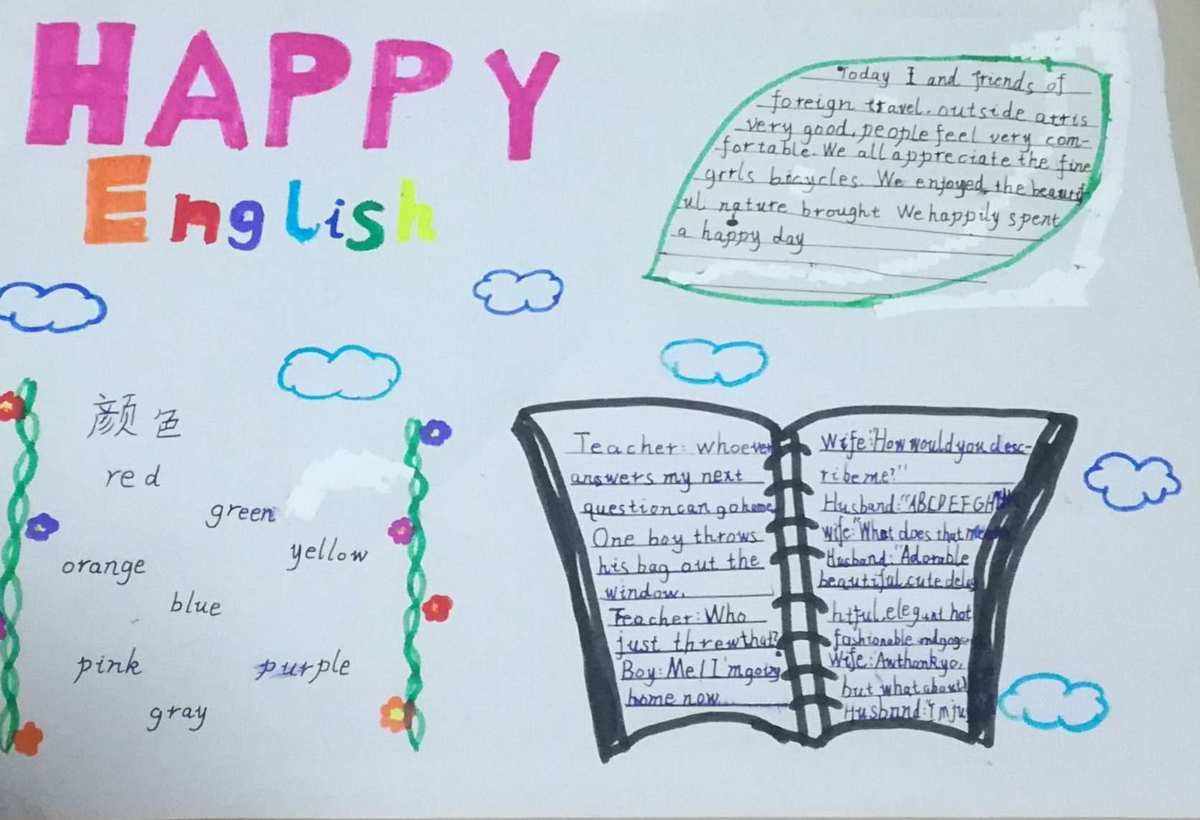 HAPPY
English
Today I and friends of
foreign travel. outside arris
very good, people feel very com-
fortable. We all appreciate the fine
grrls bicycles. We enjoyed the beautif
ul nature brought We happily spent
a happy day
颜色
red
green
yellow
orange
blue
pink
purple
gray
Teacher: whoever
answers my next
question can go home
One boy throws
his bag out the
window.
Teacher: Who
just threw that?
Boy: Me! I'm going
home now...
Wife: "How would you desc-
ribe me?"
Husband: "ABCDEFGH
Wife: "What does that mean
Husband: "Adorable
beautiful, cute delig
htful, elegant hot
fashionable
Wife: Aw thank yo,
but what about
Husband: I'm ju